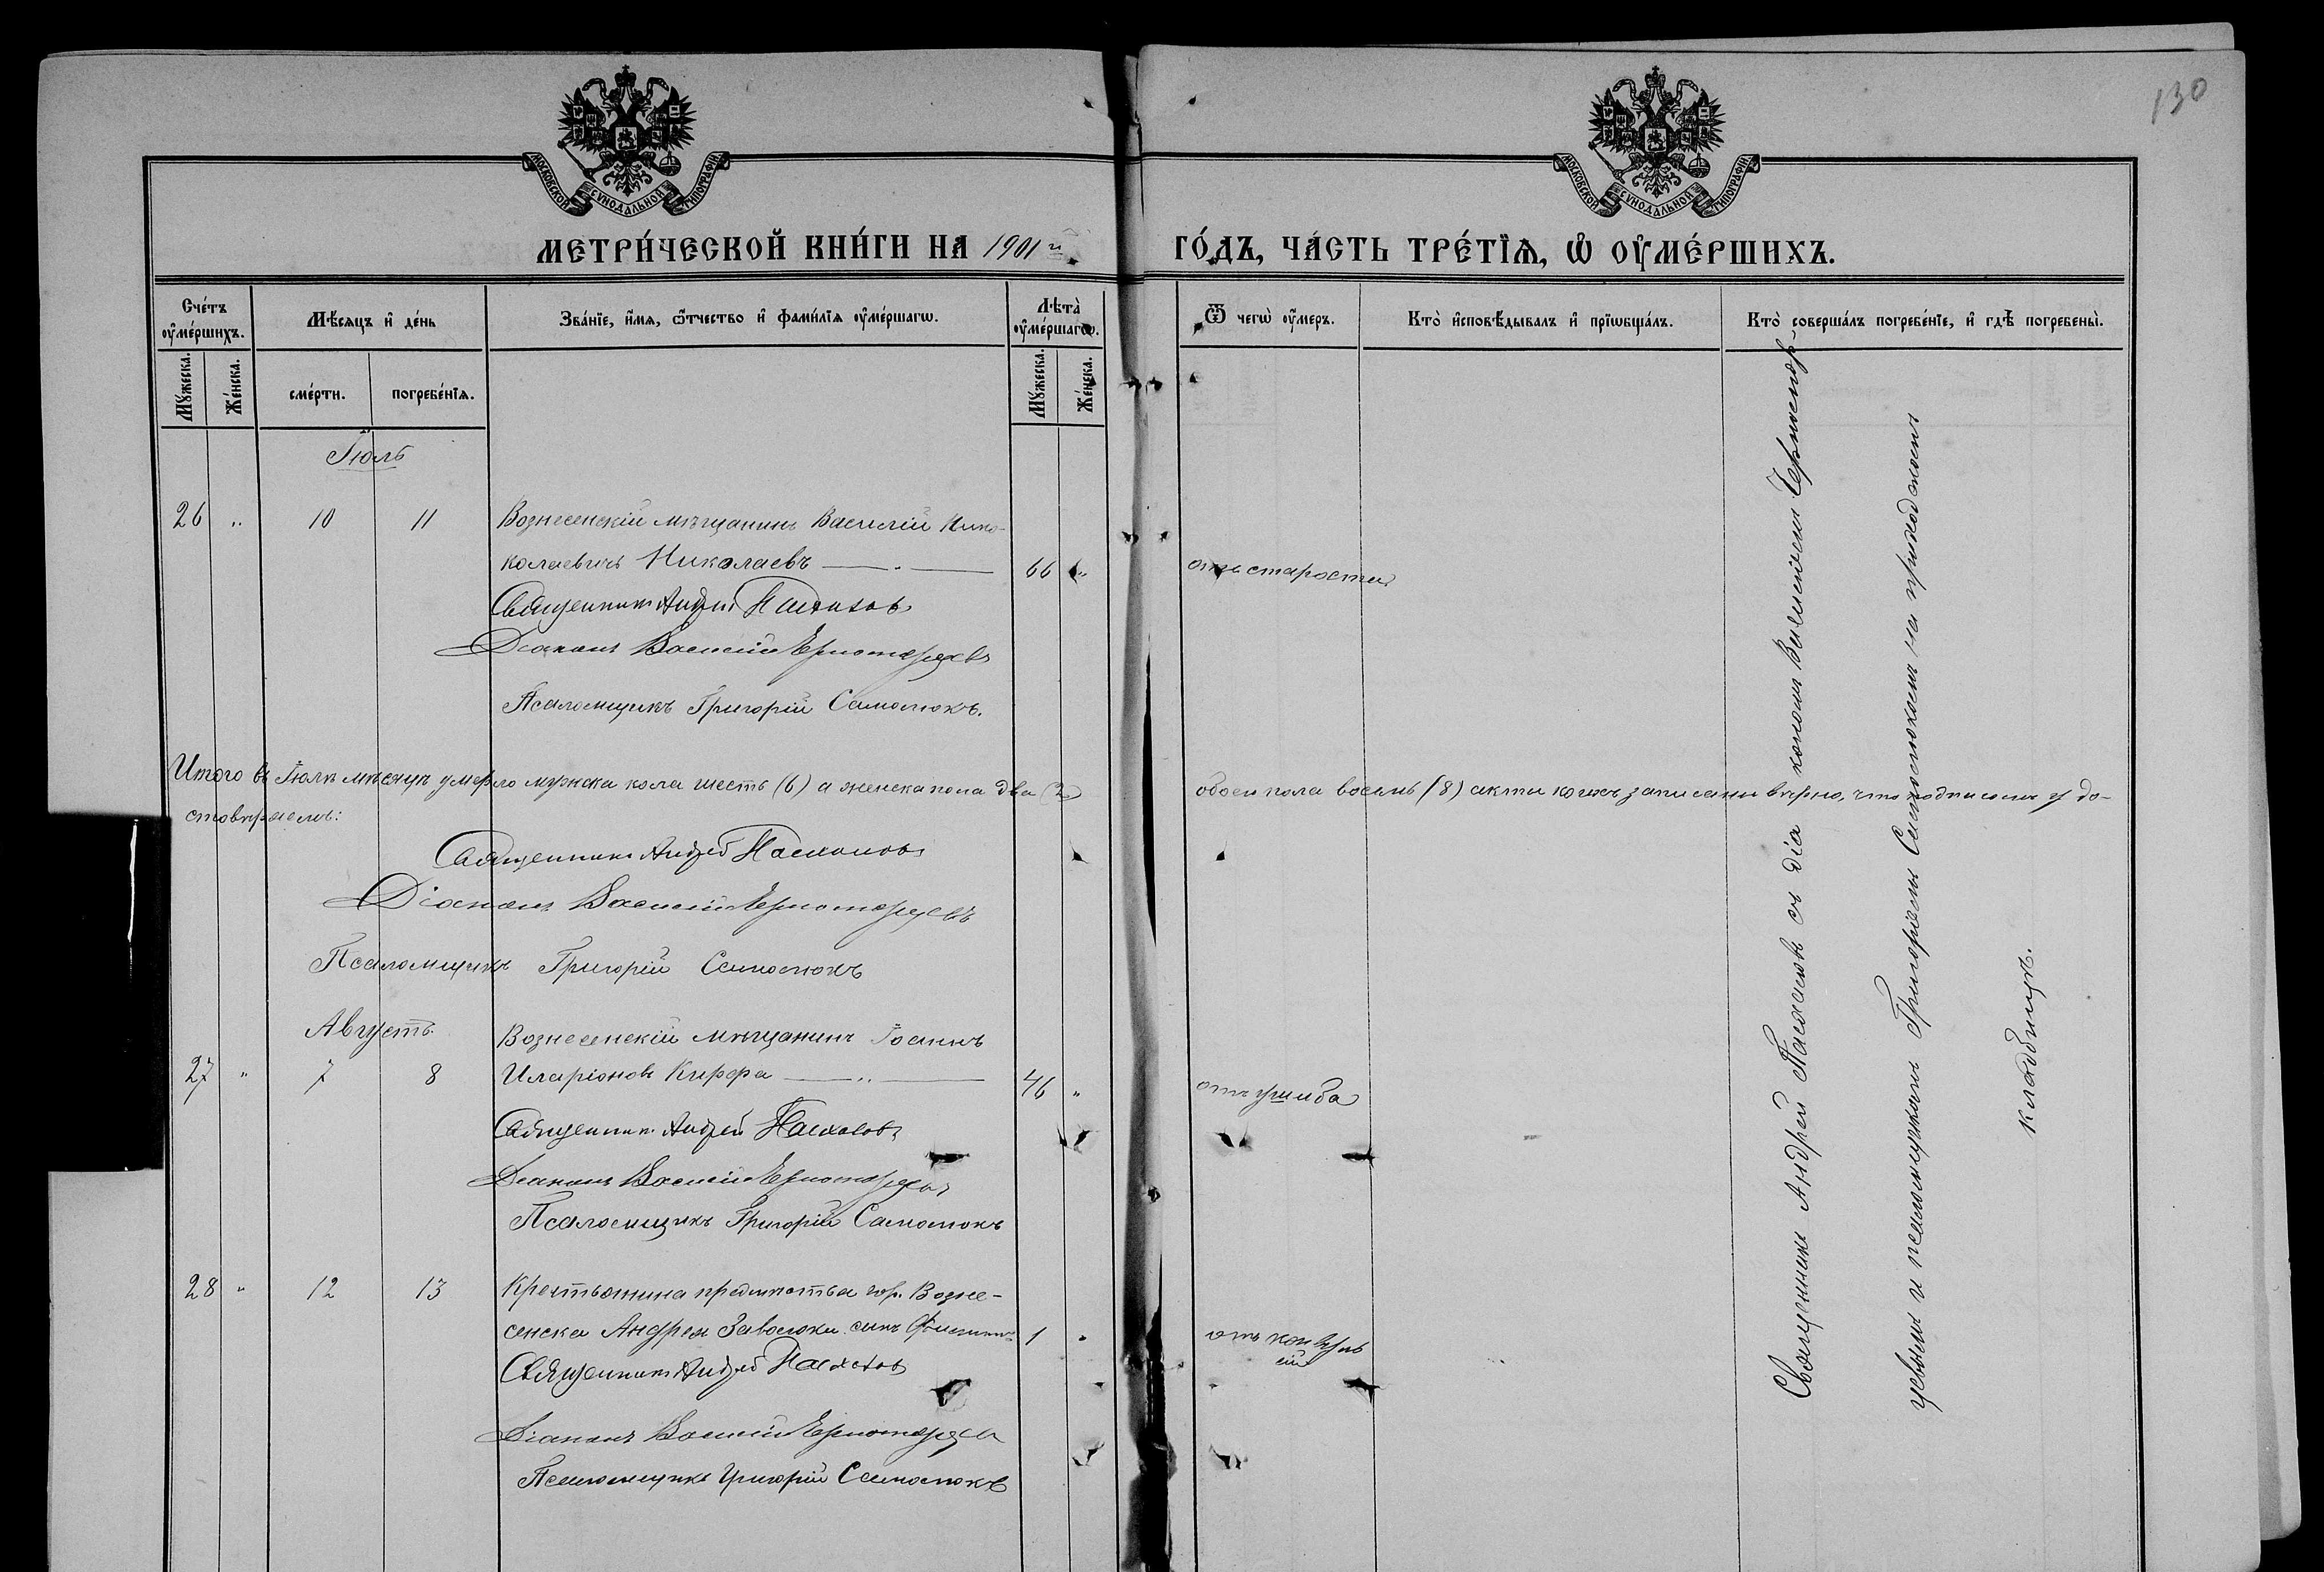 130
МОСКОВСКОЙ СѴНОДАЛЬНОЙ ТИПОГРАФІИ
МОСКОВСКОЙ СѴНОДАЛЬНОЙ ТИПОГРАФІИ
МЕТРИ́ЧЕСКОЙ КНИ́ГИ НА 1901й
ГО́ДЪ, ЧА́СТЬ ТРЕ́ТЇѦ, Ѡ҆ ОУ҆МЕ́РШИХЪ.
Сче́тъ оу҆ме́ршихъ.
Мꙋ́жеска.
Же́нска.
Мѣ́сѧцъ и҆ де́нь
сме́рти.
погребе́нїѧ.
Зва́нїе, и҆́мѧ, ѻ҆́тчество и҆ фами́лїѧ оу҆ме́ршагѡ.
Лѣ́та оу҆ме́ршагѡ.
Мꙋ́жеска.
Же́нска.
Ѿ чегѡ̀ оу҆́меръ.
Кто̀ и҆сповѣ́дывалъ и҆ прїѡбща́лъ.
Кто̀ соверша́лъ погребе́нїе, и҆ гдѣ̀ погребены̀.
Іюль
26 " 10 11 Вознесенскій мѣщанинъ Василій Нико-
колаевичъ Николаевъ 66 " отъ старости
Священникъ Андрей
Діаконъ Василій
Псаломщикъ Григорій Самостюкъ.
Итого въ Іюлѣ мѣсяцѣ умерло мужска пола шесть (6) а женска пола два (2) обоего пола восемь (8) акты коихъ записаны вѣрно, что подписомъ у до-
стовѣряемъ:
Священникъ Андрей
Діаконъ Василій
Псаломщикъ Григорій Самостюкъ
Августъ. Вознесенскій мѣщанинъ Іоаннъ
27 " 7 8 Иларіоновъ Кирфа 46 " отъ ушиба
Священникъ Андрей
Діаконъ Василій
Псаломщикъ Григорій Самостюкъ
28 " 12 13 Крестьянина предмѣстья гор. Возне-
сенска Андрея сынъ 1 " отъ конвуль
сій
Священникъ Андрей
Діаконъ Василій
Псаломщикъ Григорій Самостюкъ
Священникъ Андрей съ діа кономъ Василіемъ
цевымъ и псаломщикомъ Григоріемъ Самостюкомъ на приходскомъ
кладбищѣ.